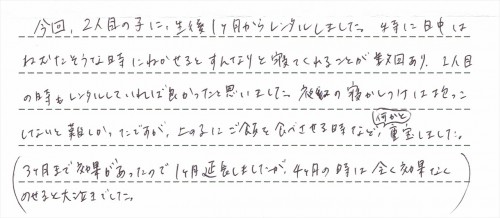 今回、2人目の子に、生後1ヶ月からレンタルしました。特に日中は
ねむたそうな時にねかせるとすんなりと寝てくれることが数回あり、1人目
の時もレンタルしていれば良かったと思いました。夜の寝かしつけは抱っこ
しないと難しかったですが、上の子にご飯を食べさせる時など、何かと重宝しました。
(3ヶ月まで効果があったので1ヶ月延長しましたが、4ヶ月の時は全く効果なく
のせると大泣きでした。)